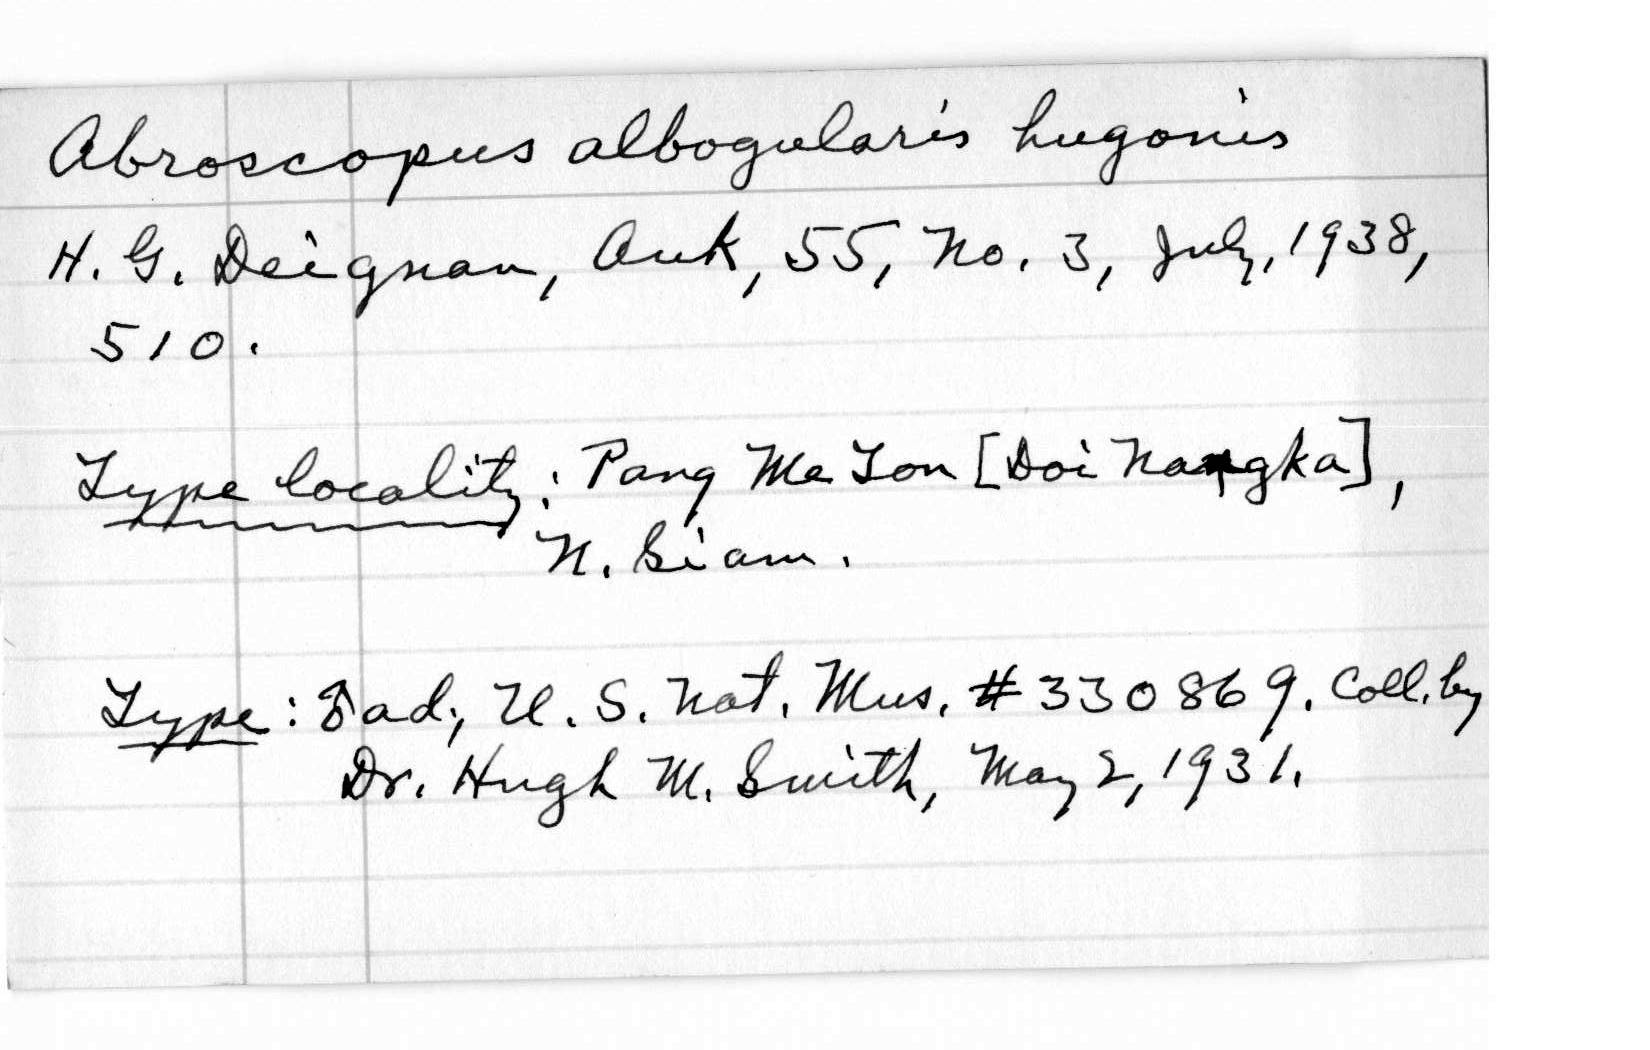 Abroscopus albogularis hugonis
H. G. Deignan, Auk, 55, No. 3, July, 1938,
510.
Type locality: Pang Me Ton [Doi Nangka],
N. Siam.
Type: ♂ ad., U. S. Nat. Mus. # 330869. Coll. by
Dr. Hugh M. Smith, May 2, 1931.